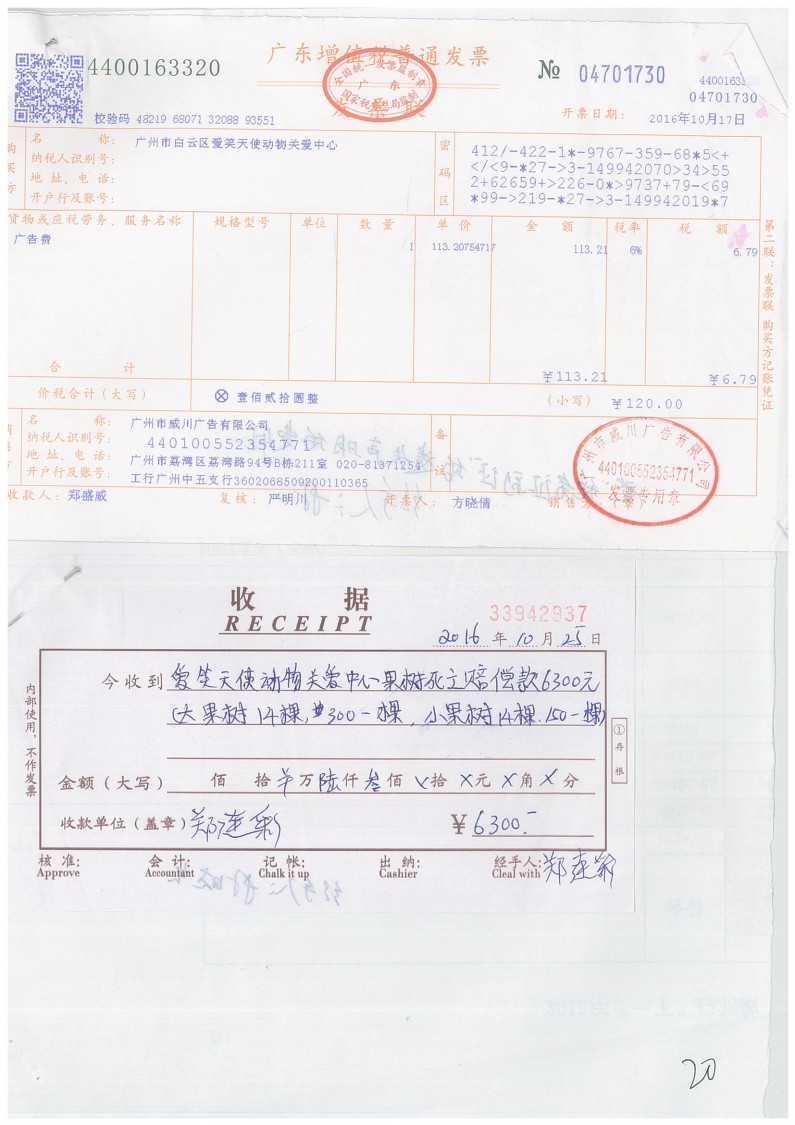 4400163320
广东增值税普通发票
发票联
全国统一发票监制章
广东
国家税务总局监制
№ 04701730
04701730
校验码 48219 68071 32088 93551
开票日期: 2016年10月17日
名称: 广州市白云区爱笑天使动物关爱中心
纳税人识别号:
地址、电话:
开户行及账号:
密码区
412/-422-1*-9767-359-68*5<+
</<9-*27->3-149942070>34>55
2+62659+>226-0*>9737+79-<69
*99->219-*27->3-149942019*7
货物或应税劳务、服务名称 规格型号 单位 数量 单价 金额 税率 税额
广告费 1 113.20754717 113.21 6% 6.79
合计 ￥113.21 ￥6.79
价税合计(大写) ⊗ 壹佰贰拾圆整 (小写) ￥120.00
名称: 广州市威川广告有限公司
纳税人识别号: 440100552354771
地址、电话: 广州市荔湾区荔湾路94号B栋211室 020-81371254
开户行及账号: 工行广州中五支行3602068509200110365
备注
广州市威川广告有限公司
440100552354771
发票专用章
收款人: 郑盛威 复核: 严明川 开票人: 方晓倩 销售方:(章)
第二联:发票联 购买方记账凭证
收据
RECEIPT
33942937
2016年10月25日
今收到 爱笑天使动物关爱中心果树死亡赔偿款6300元
(大果树14棵, 300一棵, 小果树14棵.150一棵)
金额(大写) 佰 拾 万陆仟叁佰 拾 元 角 分
收款单位(盖章) 郑连彩 ￥6300.-
核准: 会计: 记帐: 出纳: 经手人: 郑连彩
Approve Accountant Chalk it up Cashier Cleal with
内部使用,不作发票
①存根
20